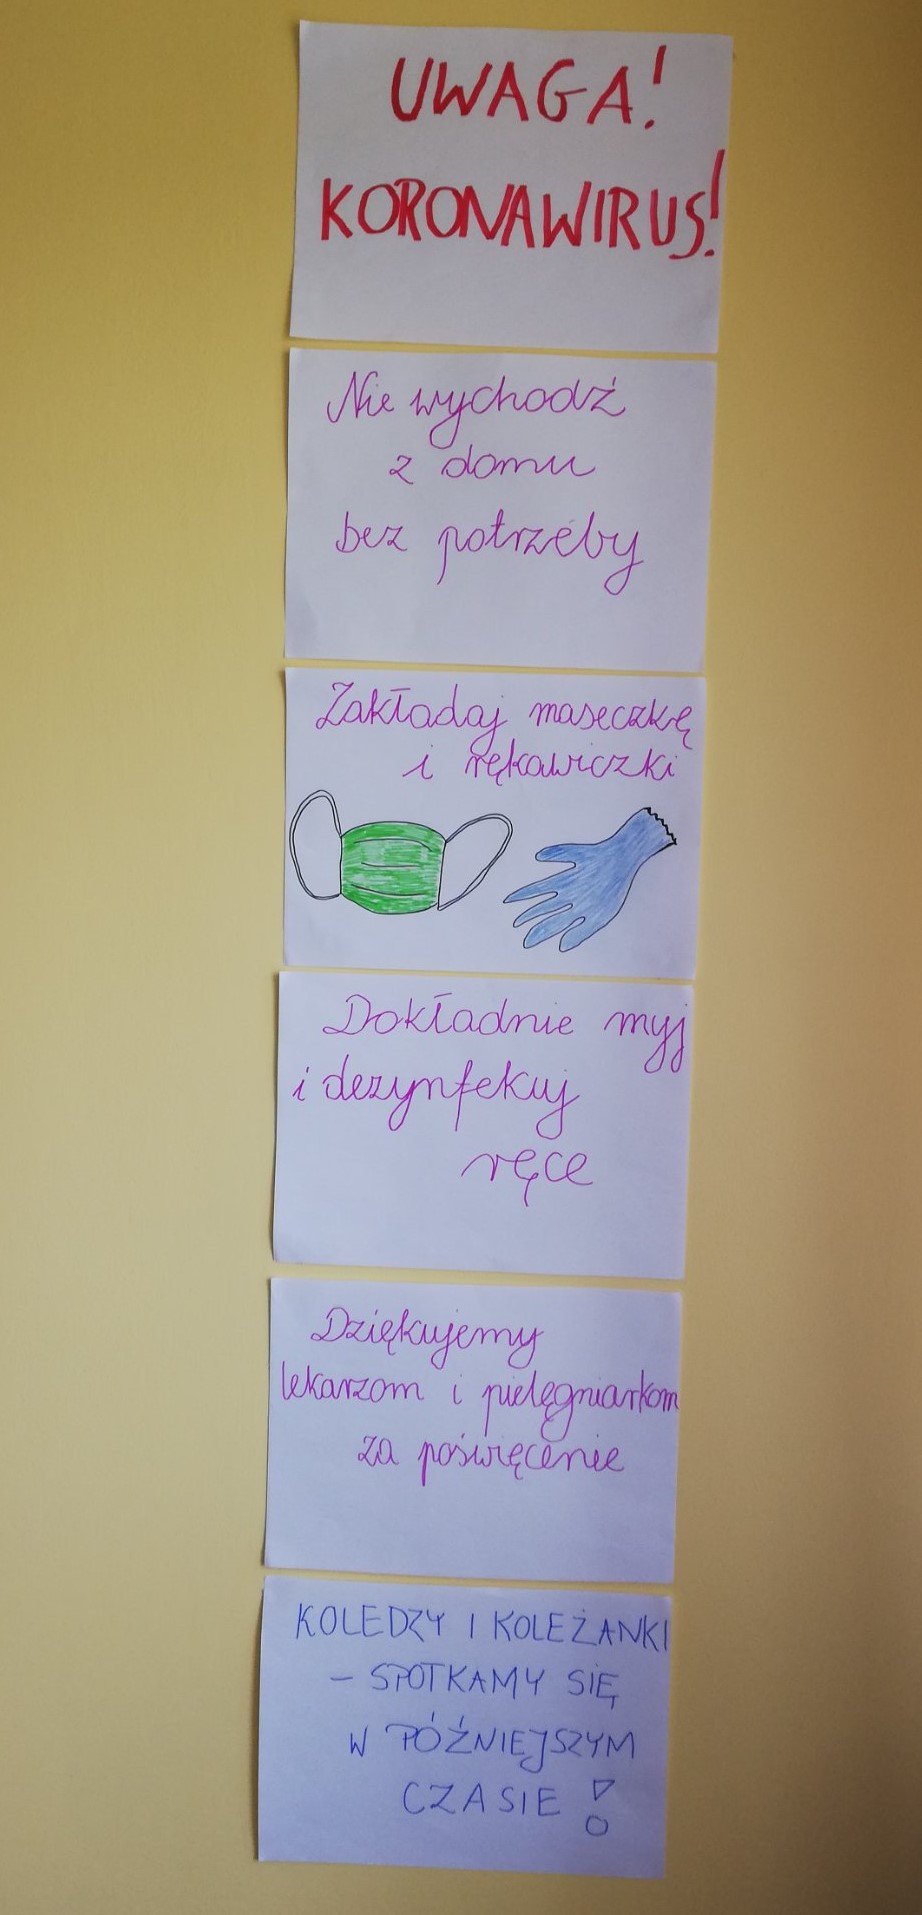 UWAGA!
KORONAWIRUS!
Nie wychodź
z domu
bez potrzeby
Zakładaj maseczkę
i rękawiczki
Dokładnie myj
i dezynfekuj
ręce
Dziękujemy
lekarzom i pielęgniarkom
za poświęcenie
KOLEDZY I KOLEŻANKI
– SPOTKAMY SIĘ
W PÓŹNIEJSZYM
CZASIE!